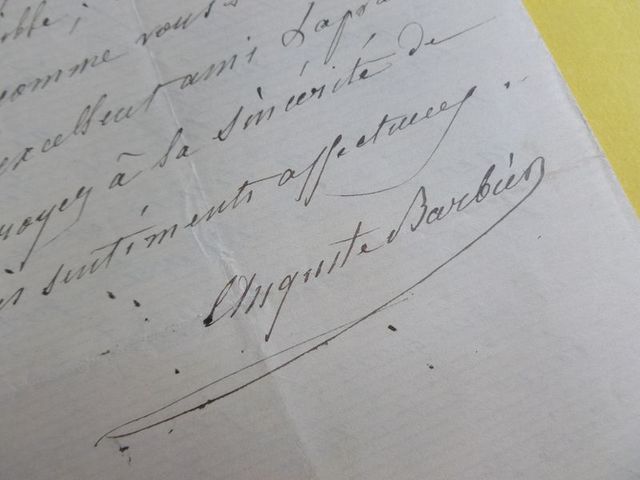 ible ;
comme vous
excellent ami Lapra
royez à la sincérité de
sentiments affectueux.
Auguste Barbier